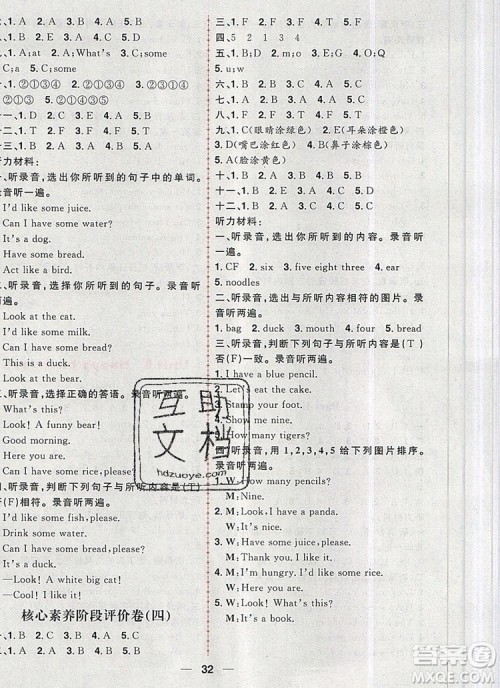 六、1. A　2. A　3. A　4. B　5. B
七、1. A;at　2. A;What's　3. C;some
4. C;a　5. C;some
八、②③①④　②③④①　②①③④
④③①②　②③①④
十一、1. D　2. C　3. E　4. A　5. B
十二、1. T　2. F　3. F　4. T　5. F
听力材料：
一、听录音，选出你所听到的句子中的单词。
录音听一遍。
I'd like some juice.
Can I have some water?
It's a dog.
Have some bread.
Act like a bear.
二、听录音，选择你所听到的句子。录音听
两遍。
Look at the cat.
I'd like some milk.
Can I have some bread?
This is a duck.
Look at the bear.
三、听录音，选择正确的答语。录音听两遍。
What's this?
Look! A funny bear!
Good morning.
Can I have some rice, please?
What's this?
四、听录音，判断下列句子与所听内容是(T)
否(F)相符。录音听两遍。
I'd like some fish, please.
Drink some water.
Can I have some bread, please?
—Look! A white big cat!
—Cool! I like it!
核心素养阶段评价卷(四)
一、1. B　2. C　3. A　4. A　5. C
二、1. A　2. B　3. A　4. B　5. A
三、1. F　2. F　3. T　4. T　5. F
四、5　2　1　3　4
五、1. D d　2. m　3. O o　4. Q q
5. u;w
六、1. B　2. A　3. C　4. A　5. B
七、1. A　2. B　3. C　4. C　5. A
八、1. F　2. T　3. T　4. F　5. T
九、1. C(眼睛涂绿色)　2. E(耳朵涂橙色)
3. D(嘴巴涂红色)　4. B(鼻子涂棕色)
5. A(脸涂黄色)
十、1. C　2. A　3. B　4. A　5. B
十一、1. B　2. D　3. E　4. A　5. C
十二、1. D　2. A　3. B　4. C
听力材料：
一、听录音，选出你所听到的内容。录音听
一遍。
1. CF　2. six　3. five eight three　4. ear
5. noodles
二、听录音，选出与所听内容相符的图片。录
音听两遍。
1. bag　2. duck　3. mouth　4. bread　5. two
三、听录音，判断下列句子与所听内容是(T)
否(F)一致。录音听两遍。
1. I have a blue pencil.
2. Let's eat the cake.
3. Stamp your foot.
4. Show me nine.
5. How many tigers?
四、听录音，用 1，2，3，4，5 给下列图片排序。
录音听两遍。
1. W: How many pencils?
M: Nine.
2. M: Look, I have a panda.
W: It's nice.
3. W: Have some juice, please.
M: Thank you. I like it.
4. M: I'm hungry. I'd like some rice.
W: Here you are.
5. M: Look! I have a gift.
W: Wow! It's a cake!
32
互助
文档
hdzuoye.com
答案圈
MXQE.COM